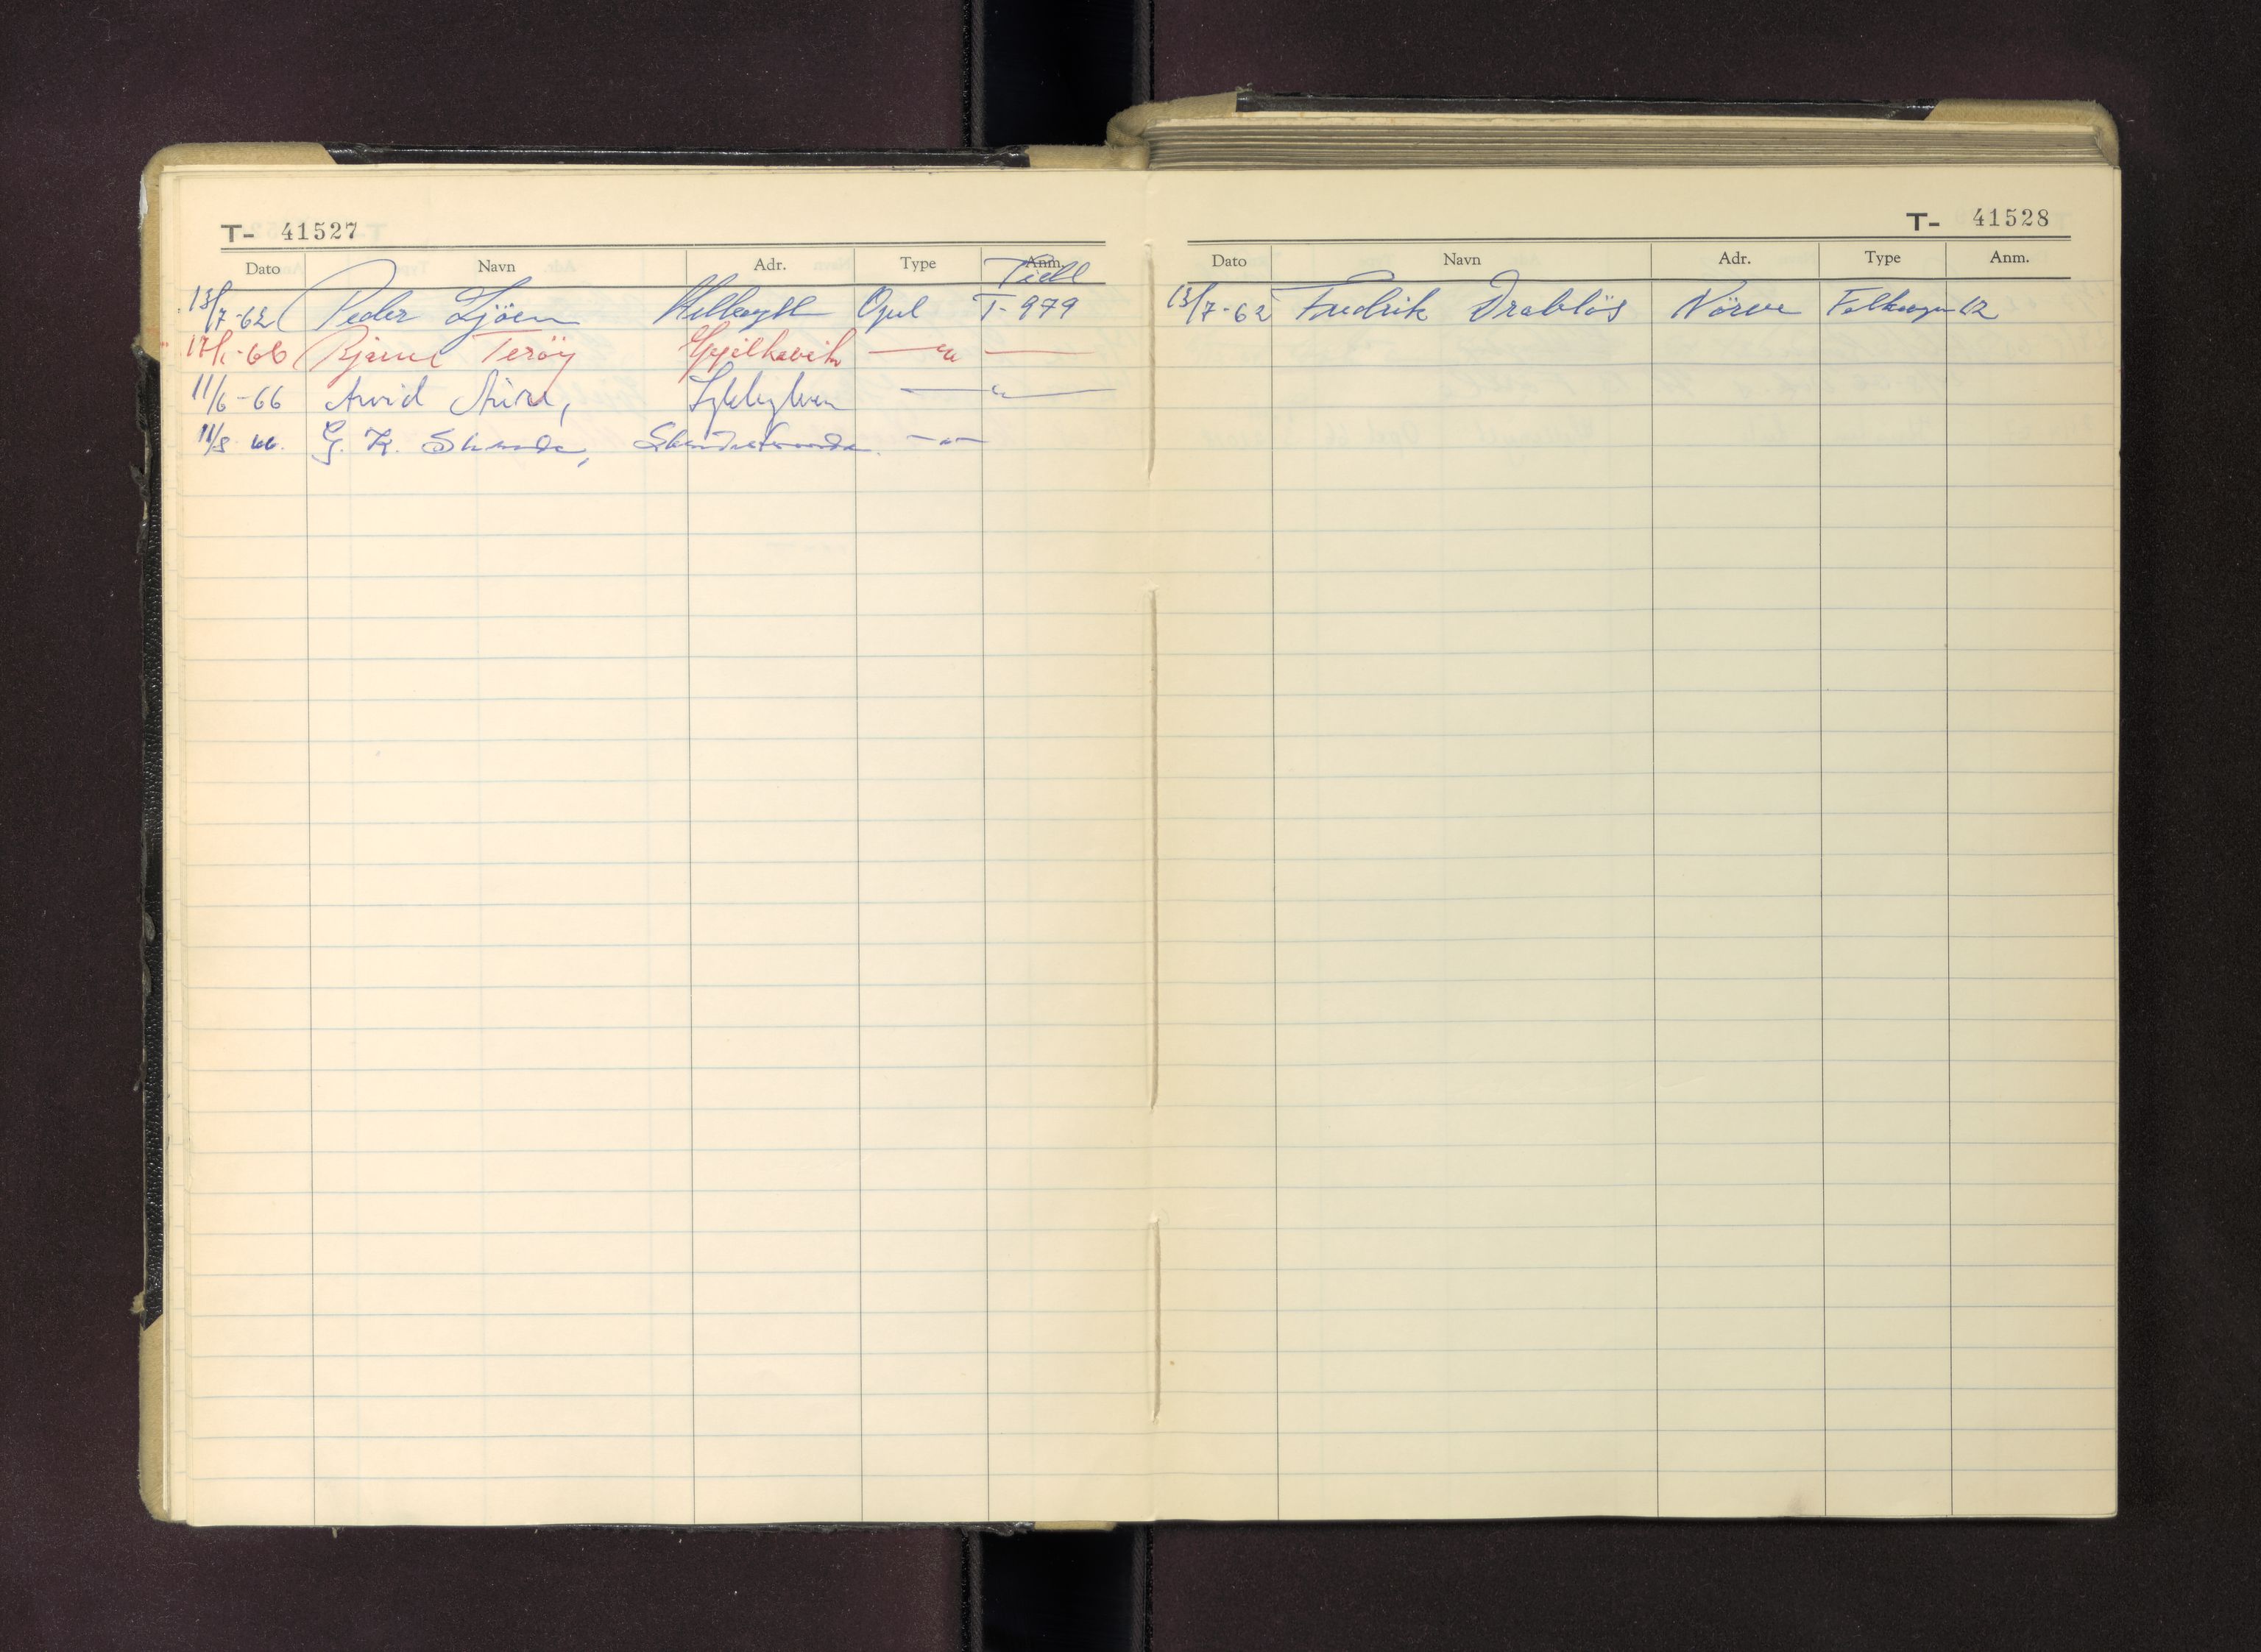 T- 41527
Dato Navn Adr. Type Anm.
Tidl
13/7-62 Peder Ljöen Hellesylt Opel T-979
12/1-66 Bjarne Teröy Gjelkavik — " —
11/6-66 Arvid Aure, Sykkylven — " —
11/8 66. G. K. — " —
T- 41528
Dato Navn Adr. Type Anm.
13/7-62 Fredrik Drabløs Nörve Folkevogn 12